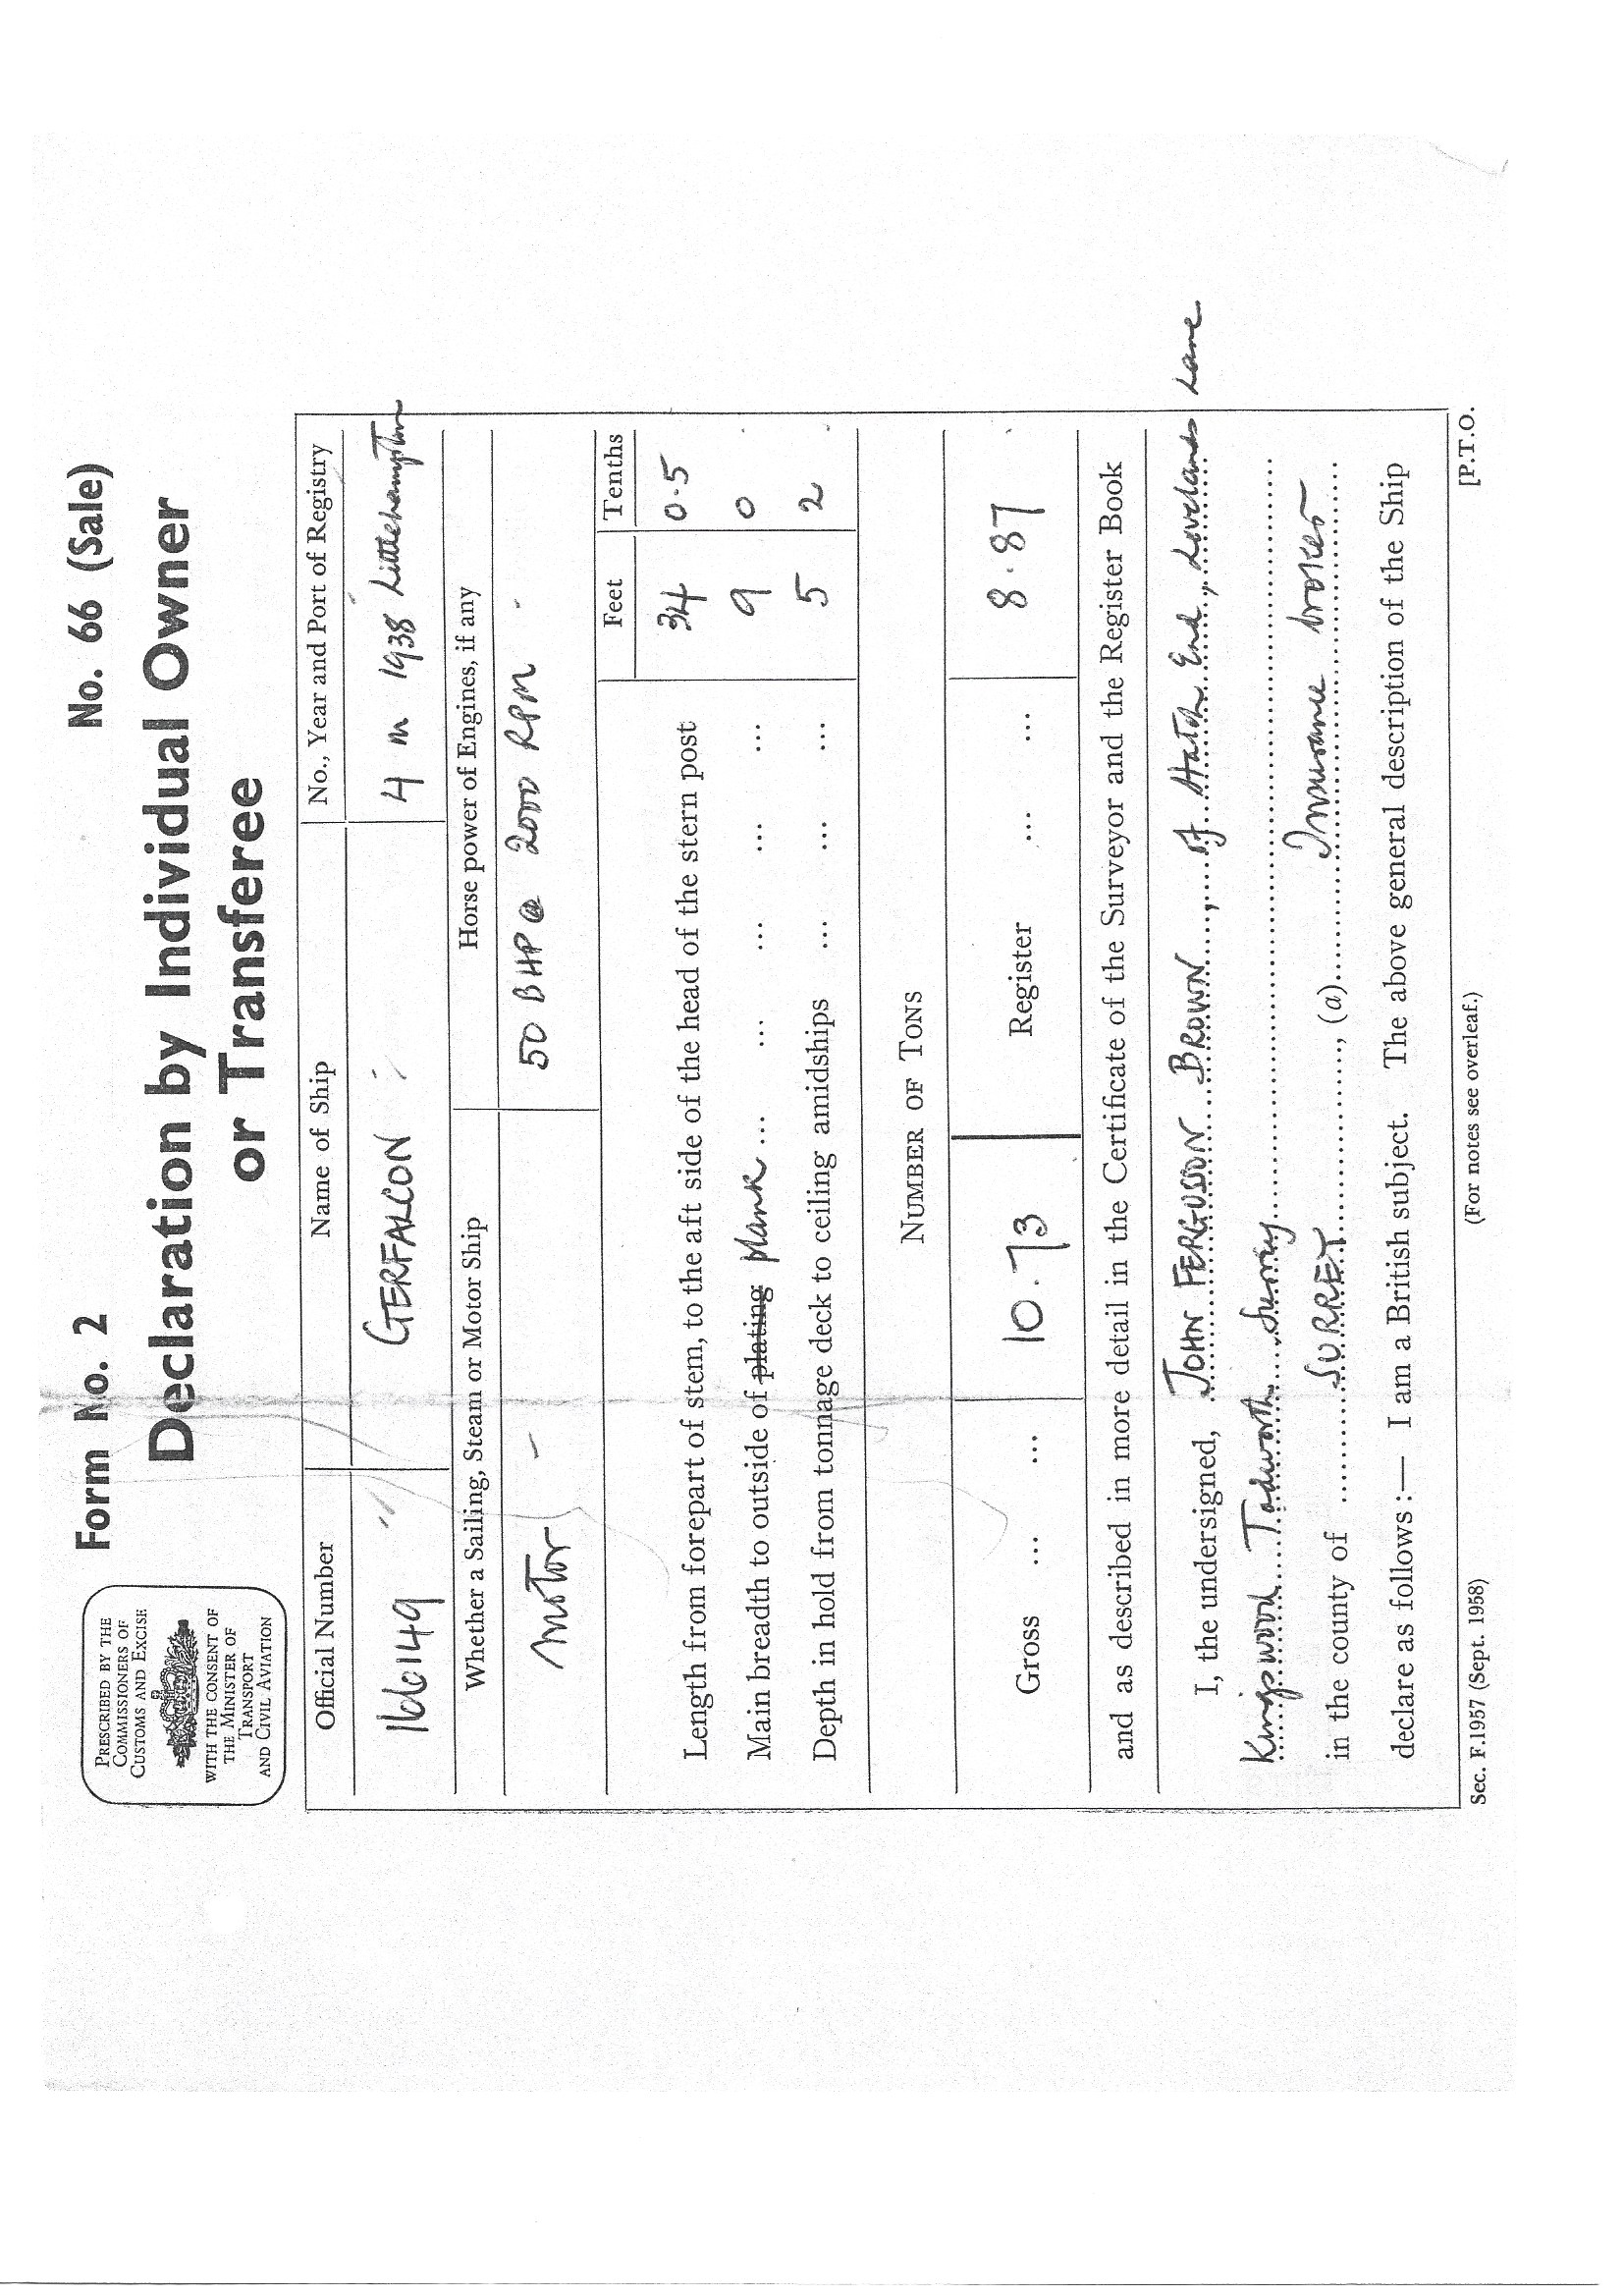 PRESCRIBED BY THE
COMMISSIONERS OF
CUSTOMS AND EXCISE
WITH THE CONSENT OF
THE MINISTER OF
TRANSPORT
AND CIVIL AVIATION
Form No. 2 No. 66 (Sale)
Declaration by Individual Owner
or Transferee
Official Number Name of Ship No., Year and Port of Registry
166149 GERFALCON 4 in 1938 Littlehampton
Whether a Sailing, Steam or Motor Ship Horse power of Engines, if any
Motor - 50 BHP @ 2000 RPM
Feet Tenths
Length from forepart of stem, to the aft side of the head of the stern post 34 0.5
Main breadth to outside of plating plank ... ... ... ... ... 9 0
Depth in hold from tonnage deck to ceiling amidships ... ... ... 5 2
NUMBER OF TONS
Gross ... ... 10.73 Register ... ... 8.87
and as described in more detail in the Certificate of the Surveyor and the Register Book
I, the undersigned, JOHN FERGUSSON BROWN, of Hatch End, Lovelands Lane
Kingswood Tadworth Surrey
in the county of SURREY, (a) Insurance broker
declare as follows:— I am a British subject. The above general description of the Ship
Sec. F.1957 (Sept. 1958) (For notes see overleaf.) [P.T.O.